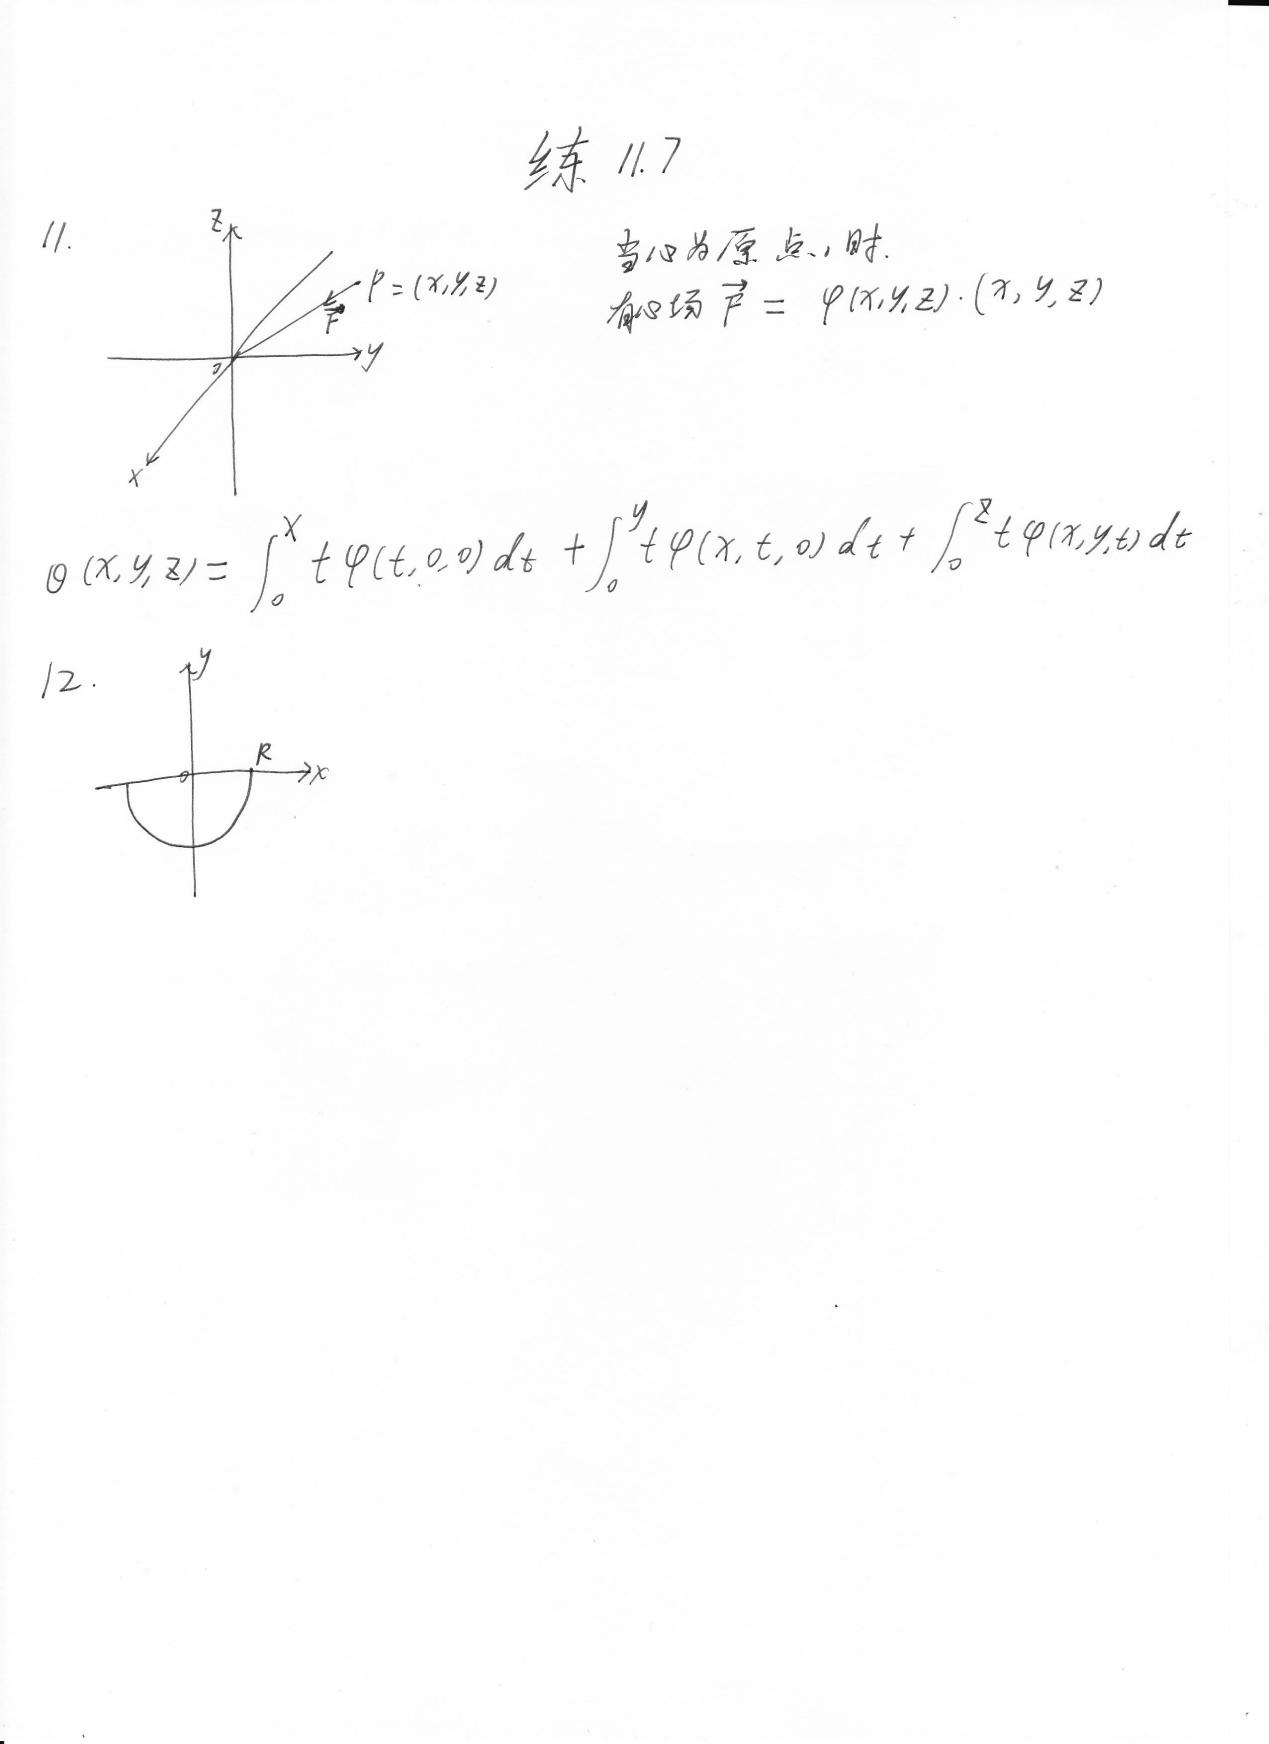 练 11.7
11.
z
P=(x,y,z)
F
y
o
x
当心为原点、时.
有心场 F = φ(x,y,z)·(x, y, z)
θ(x,y,z)=∫₀ˣ tφ(t,0,0)dt +∫₀ʸ tφ(x,t,0)dt+∫₀ᶻ tφ(x,y,t)dt
12.
y
R
o
x